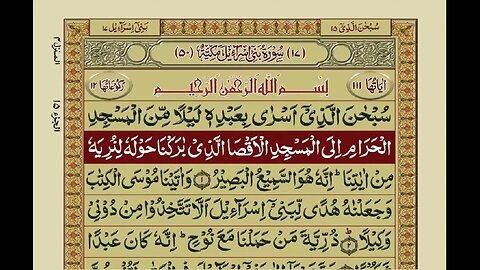 سُبْحٰنَ الَّذِيْۤ ١٥
بَنِيْۤ اِسْرَآءِيْل ١٧
(١٧) سُوْرَةُ بَنِيْۤ اِسْرَآءِيْلَ مَكِّيَّةٌ (٥٠)
اٰيَاتُهَا ١١١
بِسْمِ اللّٰهِ الرَّحْمٰنِ الرَّحِيْمِ
رُكُوْعَاتُهَا ١٢
سُبْحٰنَ الَّذِيْۤ اَسْرٰى بِعَبْدِهٖ لَيْلًا مِّنَ الْمَسْجِدِ
الْحَرَامِ اِلَى الْمَسْجِدِ الْاَقْصَا الَّذِيْ بٰرَكْنَا حَوْلَهٗ لِنُرِيَهٗ
مِنْ اٰيٰتِنَا ؕ اِنَّهٗ هُوَ السَّمِيْعُ الْبَصِيْرُ ۝١ وَاٰتَيْنَا مُوْسَى الْكِتٰبَ
وَجَعَلْنٰهُ هُدًى لِّبَنِيْۤ اِسْرَآءِيْلَ اَلَّا تَتَّخِذُوْا مِنْ دُوْنِيْ
وَكِيْلًا ۝٢ ؕ ذُرِّيَّةَ مَنْ حَمَلْنَا مَعَ نُوْحٍ ؕ اِنَّهٗ كَانَ عَبْدًا
الجزء ١٥